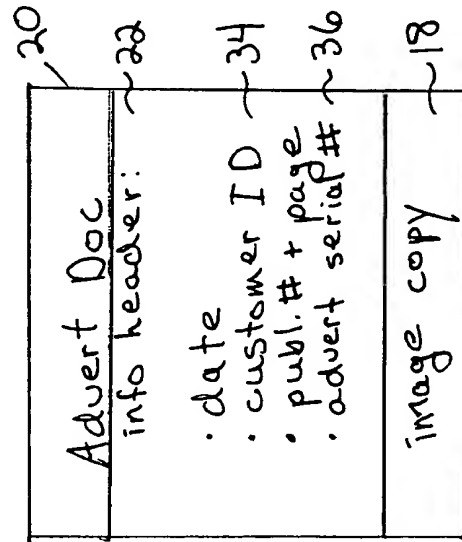 20
Advert Doc
info header: ~22
· date
· customer ID ~34
· publ. # + page
· advert serial # ~36
image copy ~18